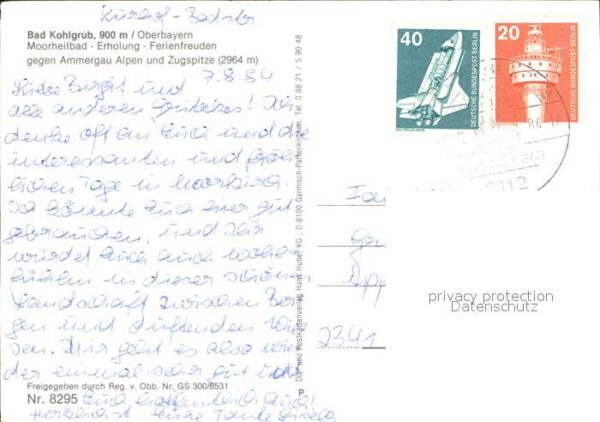 Bad Kohlgrub, 900 m / Oberbayern
Moorheilbad - Erholung - Ferienfreuden
gegen Ammergau Alpen und Zugspitze (2964 m)
7.8.84
Liebe Birgit und
alle anderen
denke oft an Euch und die
interessanten und fröh-
lichen Tage in
Ich könnte Euch hier gut
gebrauchen, und Ihr
würdet Euch auch wohl
fühlen in dieser schönen
Landschaft zwischen Ber-
gen und duftenden Wie-
sen. Mir geht es also wie-
der einmal sehr gut und
Euch hoffentlich auch!
herzlichst Eure Tante Gisela
Freigegeben durch Reg. v. Obb. Nr. GS 300/8531
Nr. 8295
Druck und Postkartenverlag Hans Huber KG., D-8100 Garmisch-Partenkirchen, Tel. 0 88 21 / 5 90 48
40
DEUTSCHE BUNDESPOST BERLIN
20
DEUTSCHE BUNDESPOST BERLIN
8112
2341
privacy protection
Datenschutz